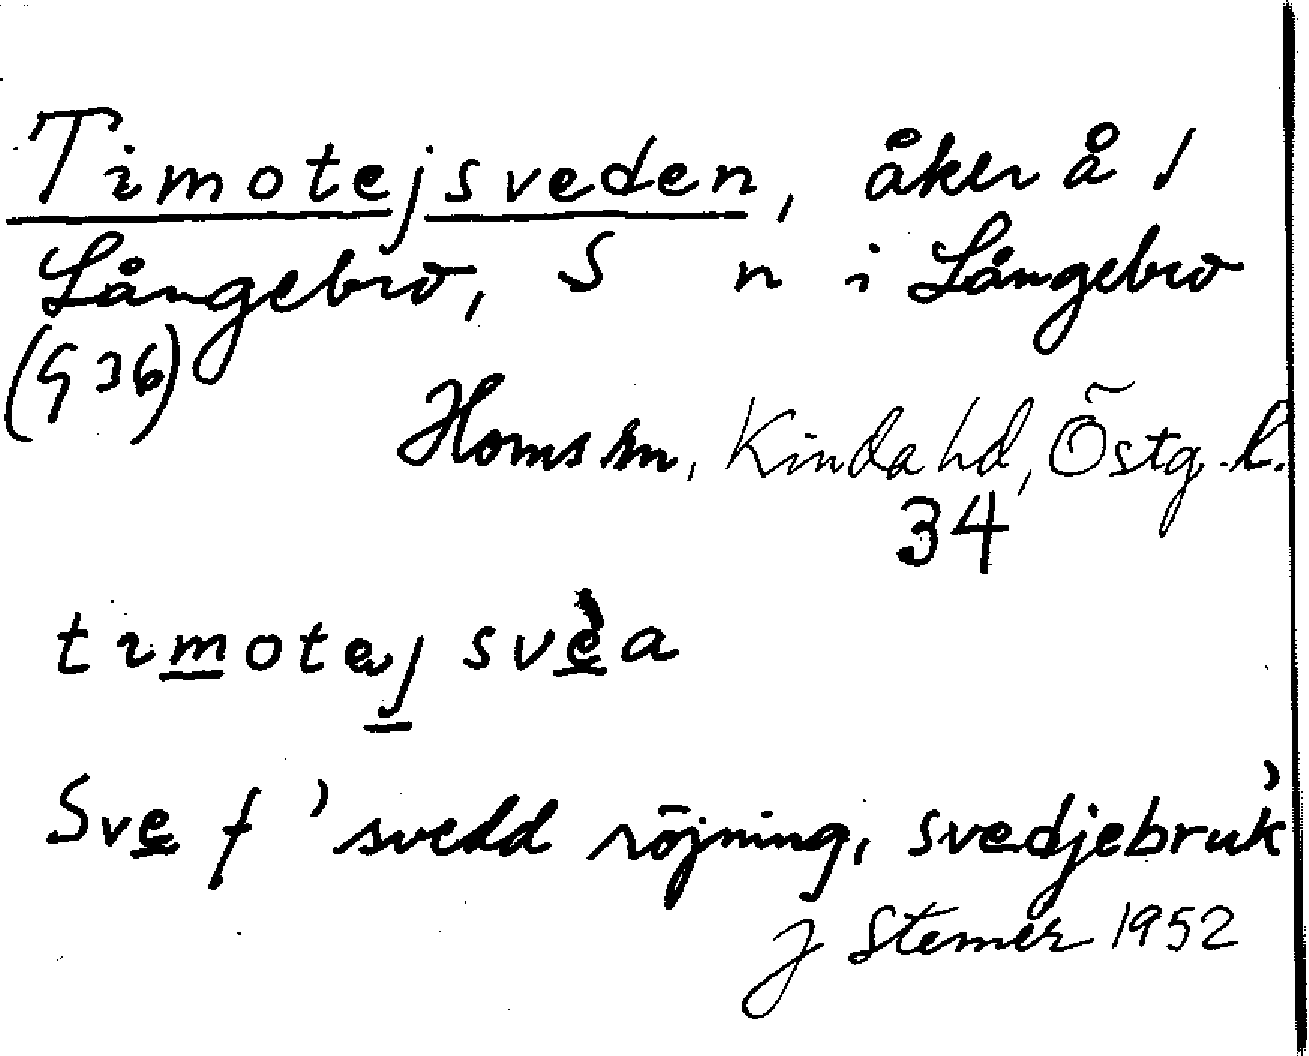 Timotejsveden, åker å 1
Långebro, S n i Långebro
(G 36)
Horns sn, Kinda hd, Östg. l.
34
timotej svèa
Sve f 'svedd röjning, svedjebruk'
J Stemer 1952